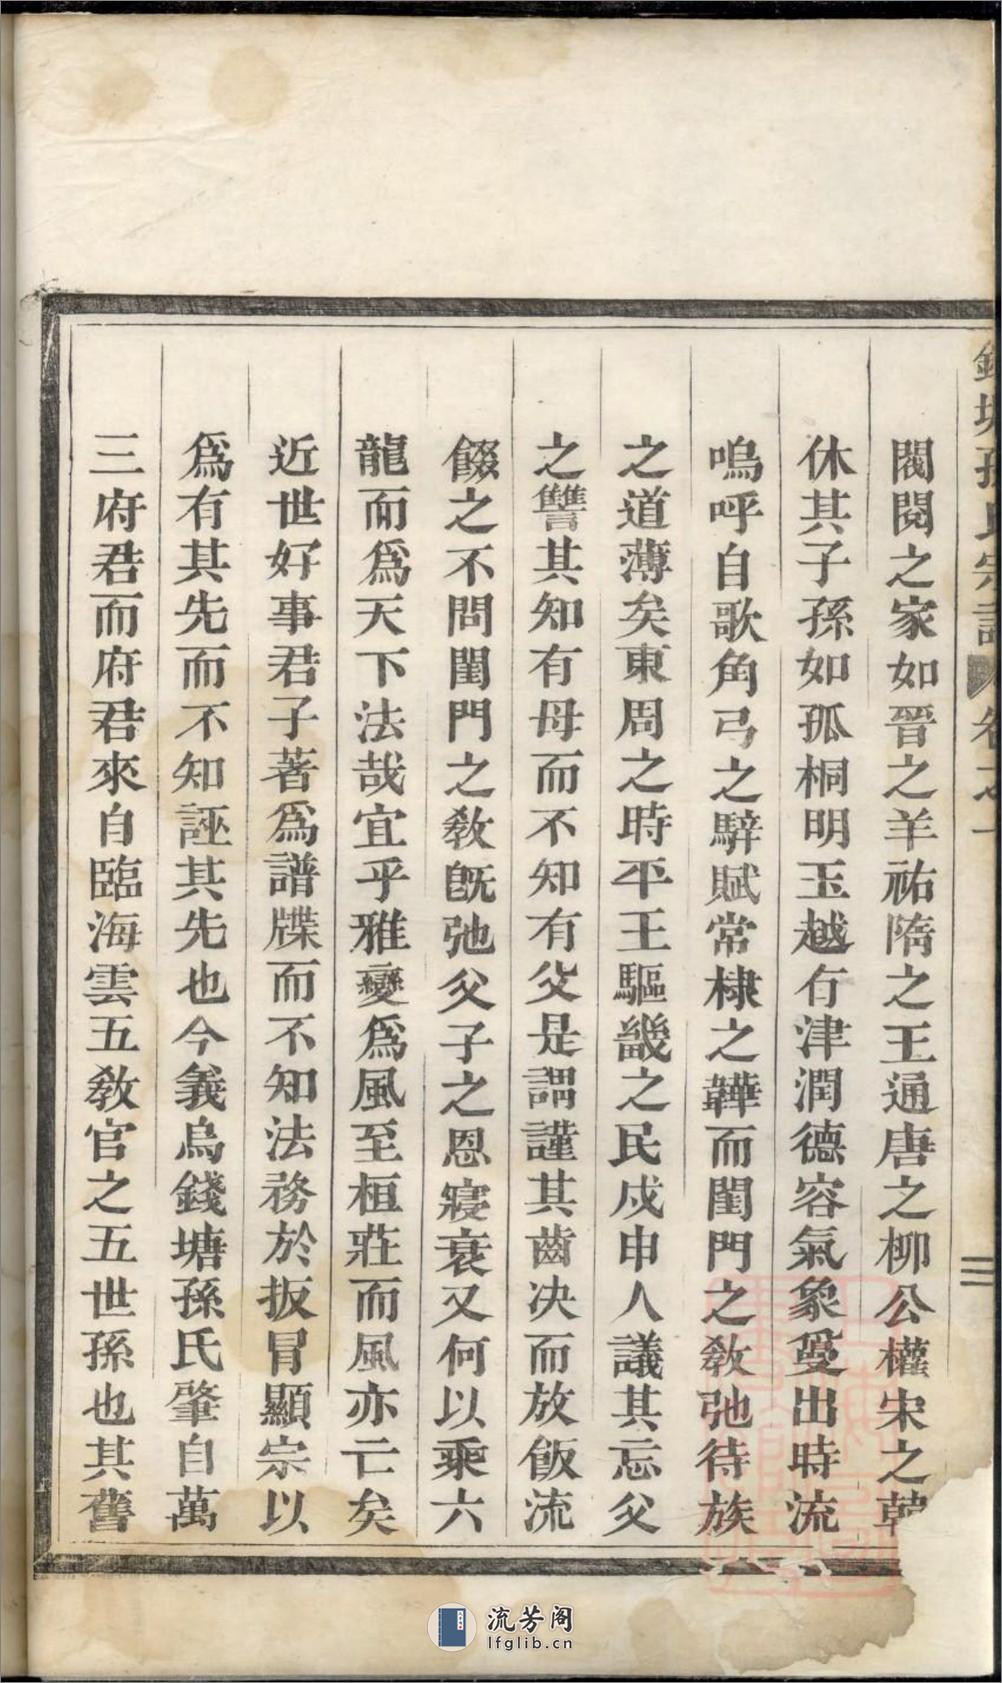 錢塘孫氏宗譜 卷之一 三
閥閱之家如晉之羊祐隋之王通唐之柳公權宋之韓
休其子孫如孤桐明玉越有津潤德容氣象敻出時流
嗚呼自歌角弓之騂賦常棣之韡而閨門之敎弛待族
之道薄矣東周之時平王驅畿之民戍申人議其忘父
之讐其知有母而不知有父是謂謹其齒决而放飯流
餟之不問閨門之敎旣弛父子之恩寖衰又何以乘六
龍而爲天下法哉宜乎雅變爲風至桓莊而風亦亡矣
近世好事君子著爲譜牒而不知法務於扳冒顯宗以
爲有其先而不知誣其先也今義烏錢塘孫氏肇自萬
三府君而府君來自臨海雲五敎官之五世孫也其舊
流芳阁
lfglib.cn